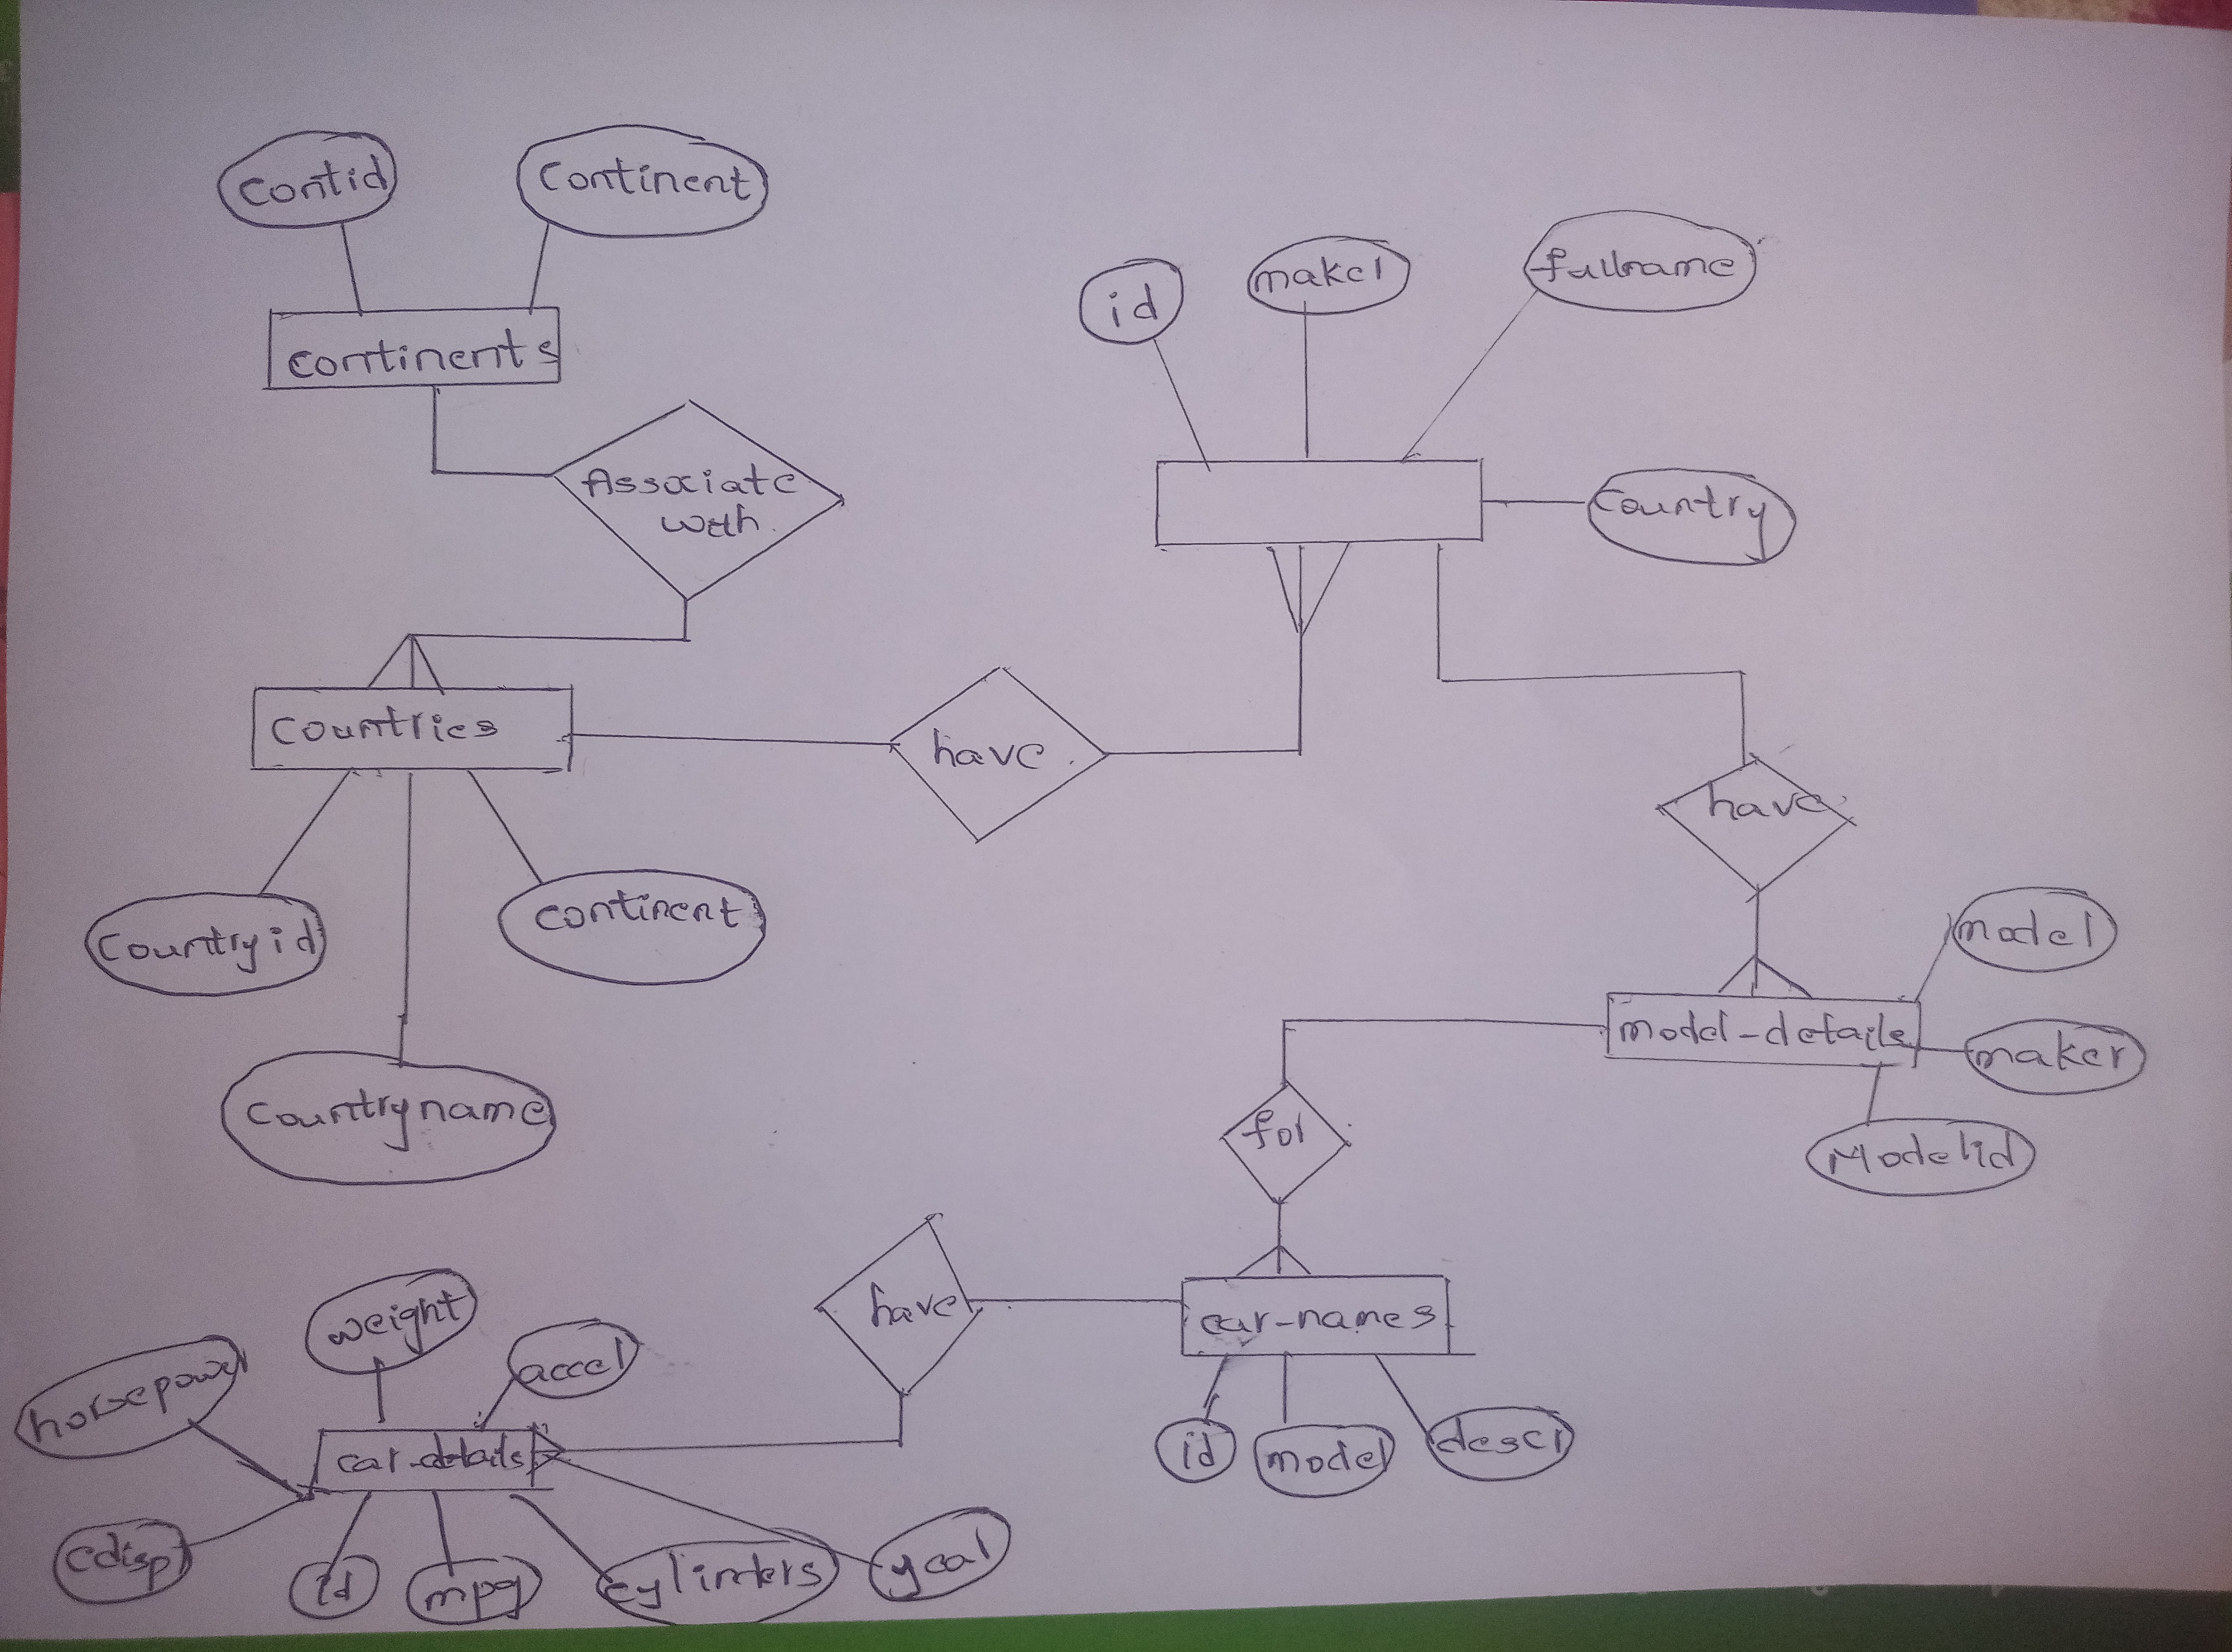 Contid
Continent
continents
Associate
with
id
maker
fullname
Country
Countries
have
have
Countryid
continent
Countryname
model
model-details
maker
Modelid
for
have
car-names
id
model
descr
weight
horsepower
accel
car-details
edisp
id
mpg
cylinders
year